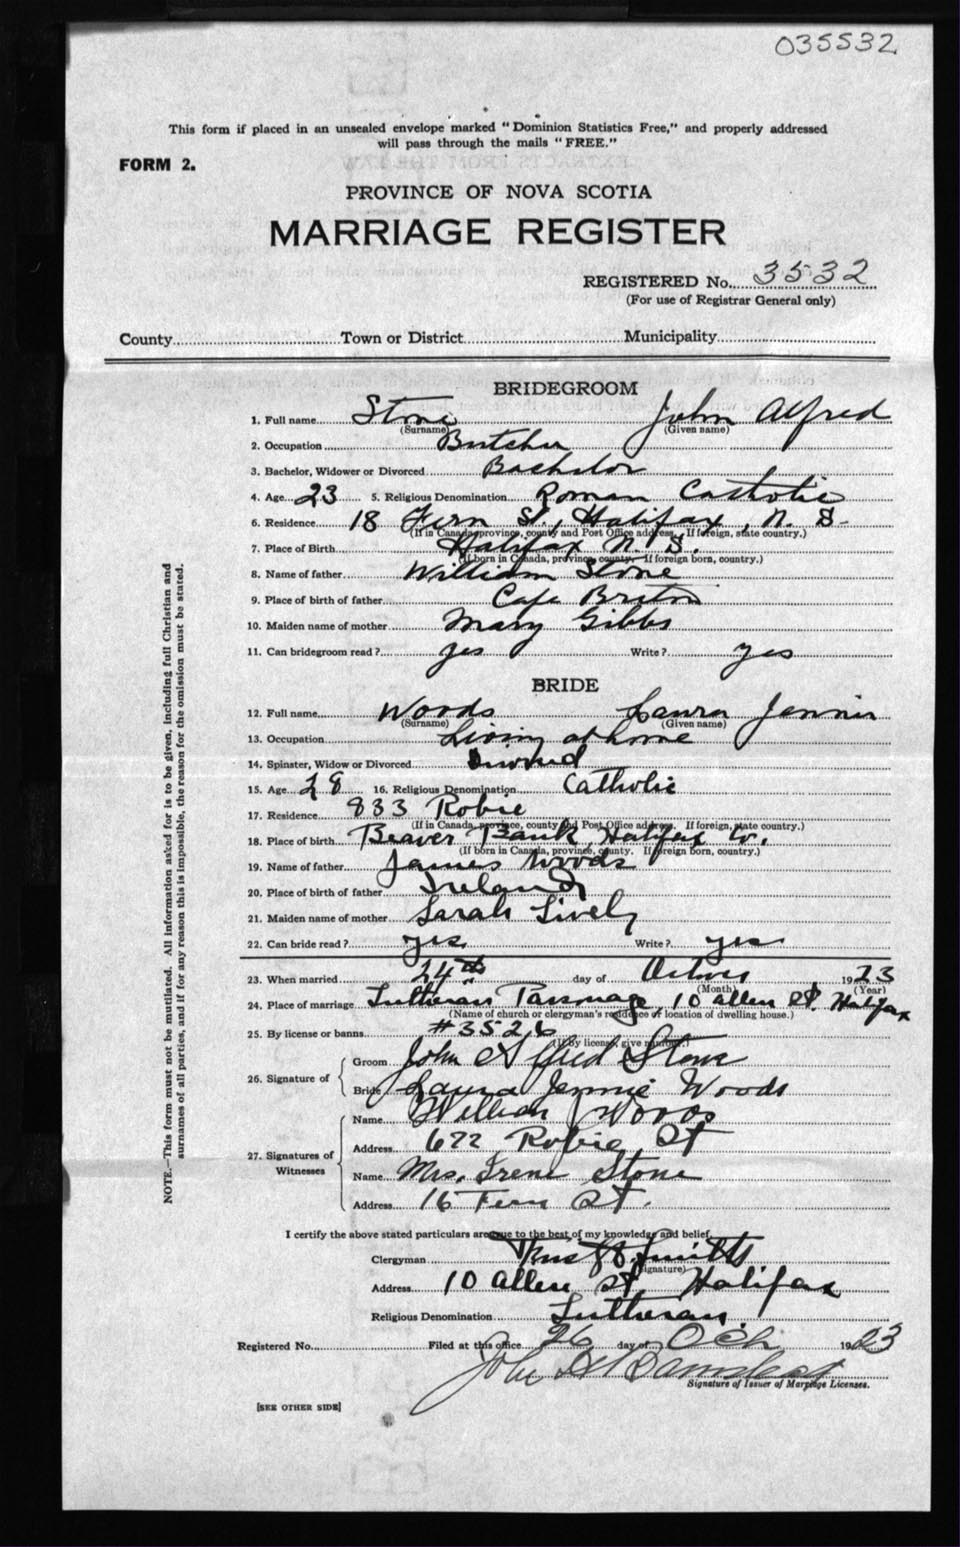 035532
This form if placed in an unsealed envelope marked "Dominion Statistics Free," and properly addressed
will pass through the mails "FREE."
FORM 2.
PROVINCE OF NOVA SCOTIA
MARRIAGE REGISTER
REGISTERED No. 3532
(For use of Registrar General only)
County Town or District Municipality
BRIDEGROOM
1. Full name Stone John Alfred
(Surname) (Given name)
2. Occupation Butcher
3. Bachelor, Widower or Divorced Bachelor
4. Age 23 5. Religious Denomination Roman Catholic
6. Residence 18 Fern St., Halifax, N. S.
(If in Canada, province, county and Post Office address. If foreign, state country.)
7. Place of Birth Halifax N. S.
(If born in Canada, province, county. If foreign born, country.)
8. Name of father William Stone
9. Place of birth of father Cape Breton
10. Maiden name of mother Mary Gibbs
11. Can bridegroom read? yes Write? yes
BRIDE
12. Full name Woods Laura Jennie
(Surname) (Given name)
13. Occupation Living at home
14. Spinster, Widow or Divorced Divorced
15. Age 28 16. Religious Denomination Catholic
17. Residence 833 Robie
(If in Canada, province, county and Post Office address. If foreign, state country.)
18. Place of birth Beaver Bank, Halifax Co.
(If born in Canada, province, county. If foreign born, country.)
19. Name of father James Woods
20. Place of birth of father Ireland
21. Maiden name of mother Sarah Lively
22. Can bride read? yes Write? yes
23. When married 24th day of October 1923
(Month) (Year)
24. Place of marriage Lutheran Parsonage 10 Allen St. Halifax
(Name of church or clergyman's residence or location of dwelling house.)
25. By license or banns #3526
(If by license, give number.)
26. Signature of Groom John Alfred Stone
Bride Laura Jennie Woods
27. Signatures of Witnesses Name William Woods
Address 622 Robie St
Name Mrs. Irene Stone
Address 16 Fern St.
I certify the above stated particulars are true to the best of my knowledge and belief.
Clergyman
(Signature)
Address 10 Allen St Halifax
Religious Denomination Lutheran.
Registered No. Filed at this office 26 day of Oct 1923
John
Signature of Issuer of Marriage Licenses.
[SEE OTHER SIDE]
NOTE.—This form must not be mutilated. All information asked for is to be given, including full Christian and
surnames of all parties, and if for any reason this is impossible, the reason for the omission must be stated.